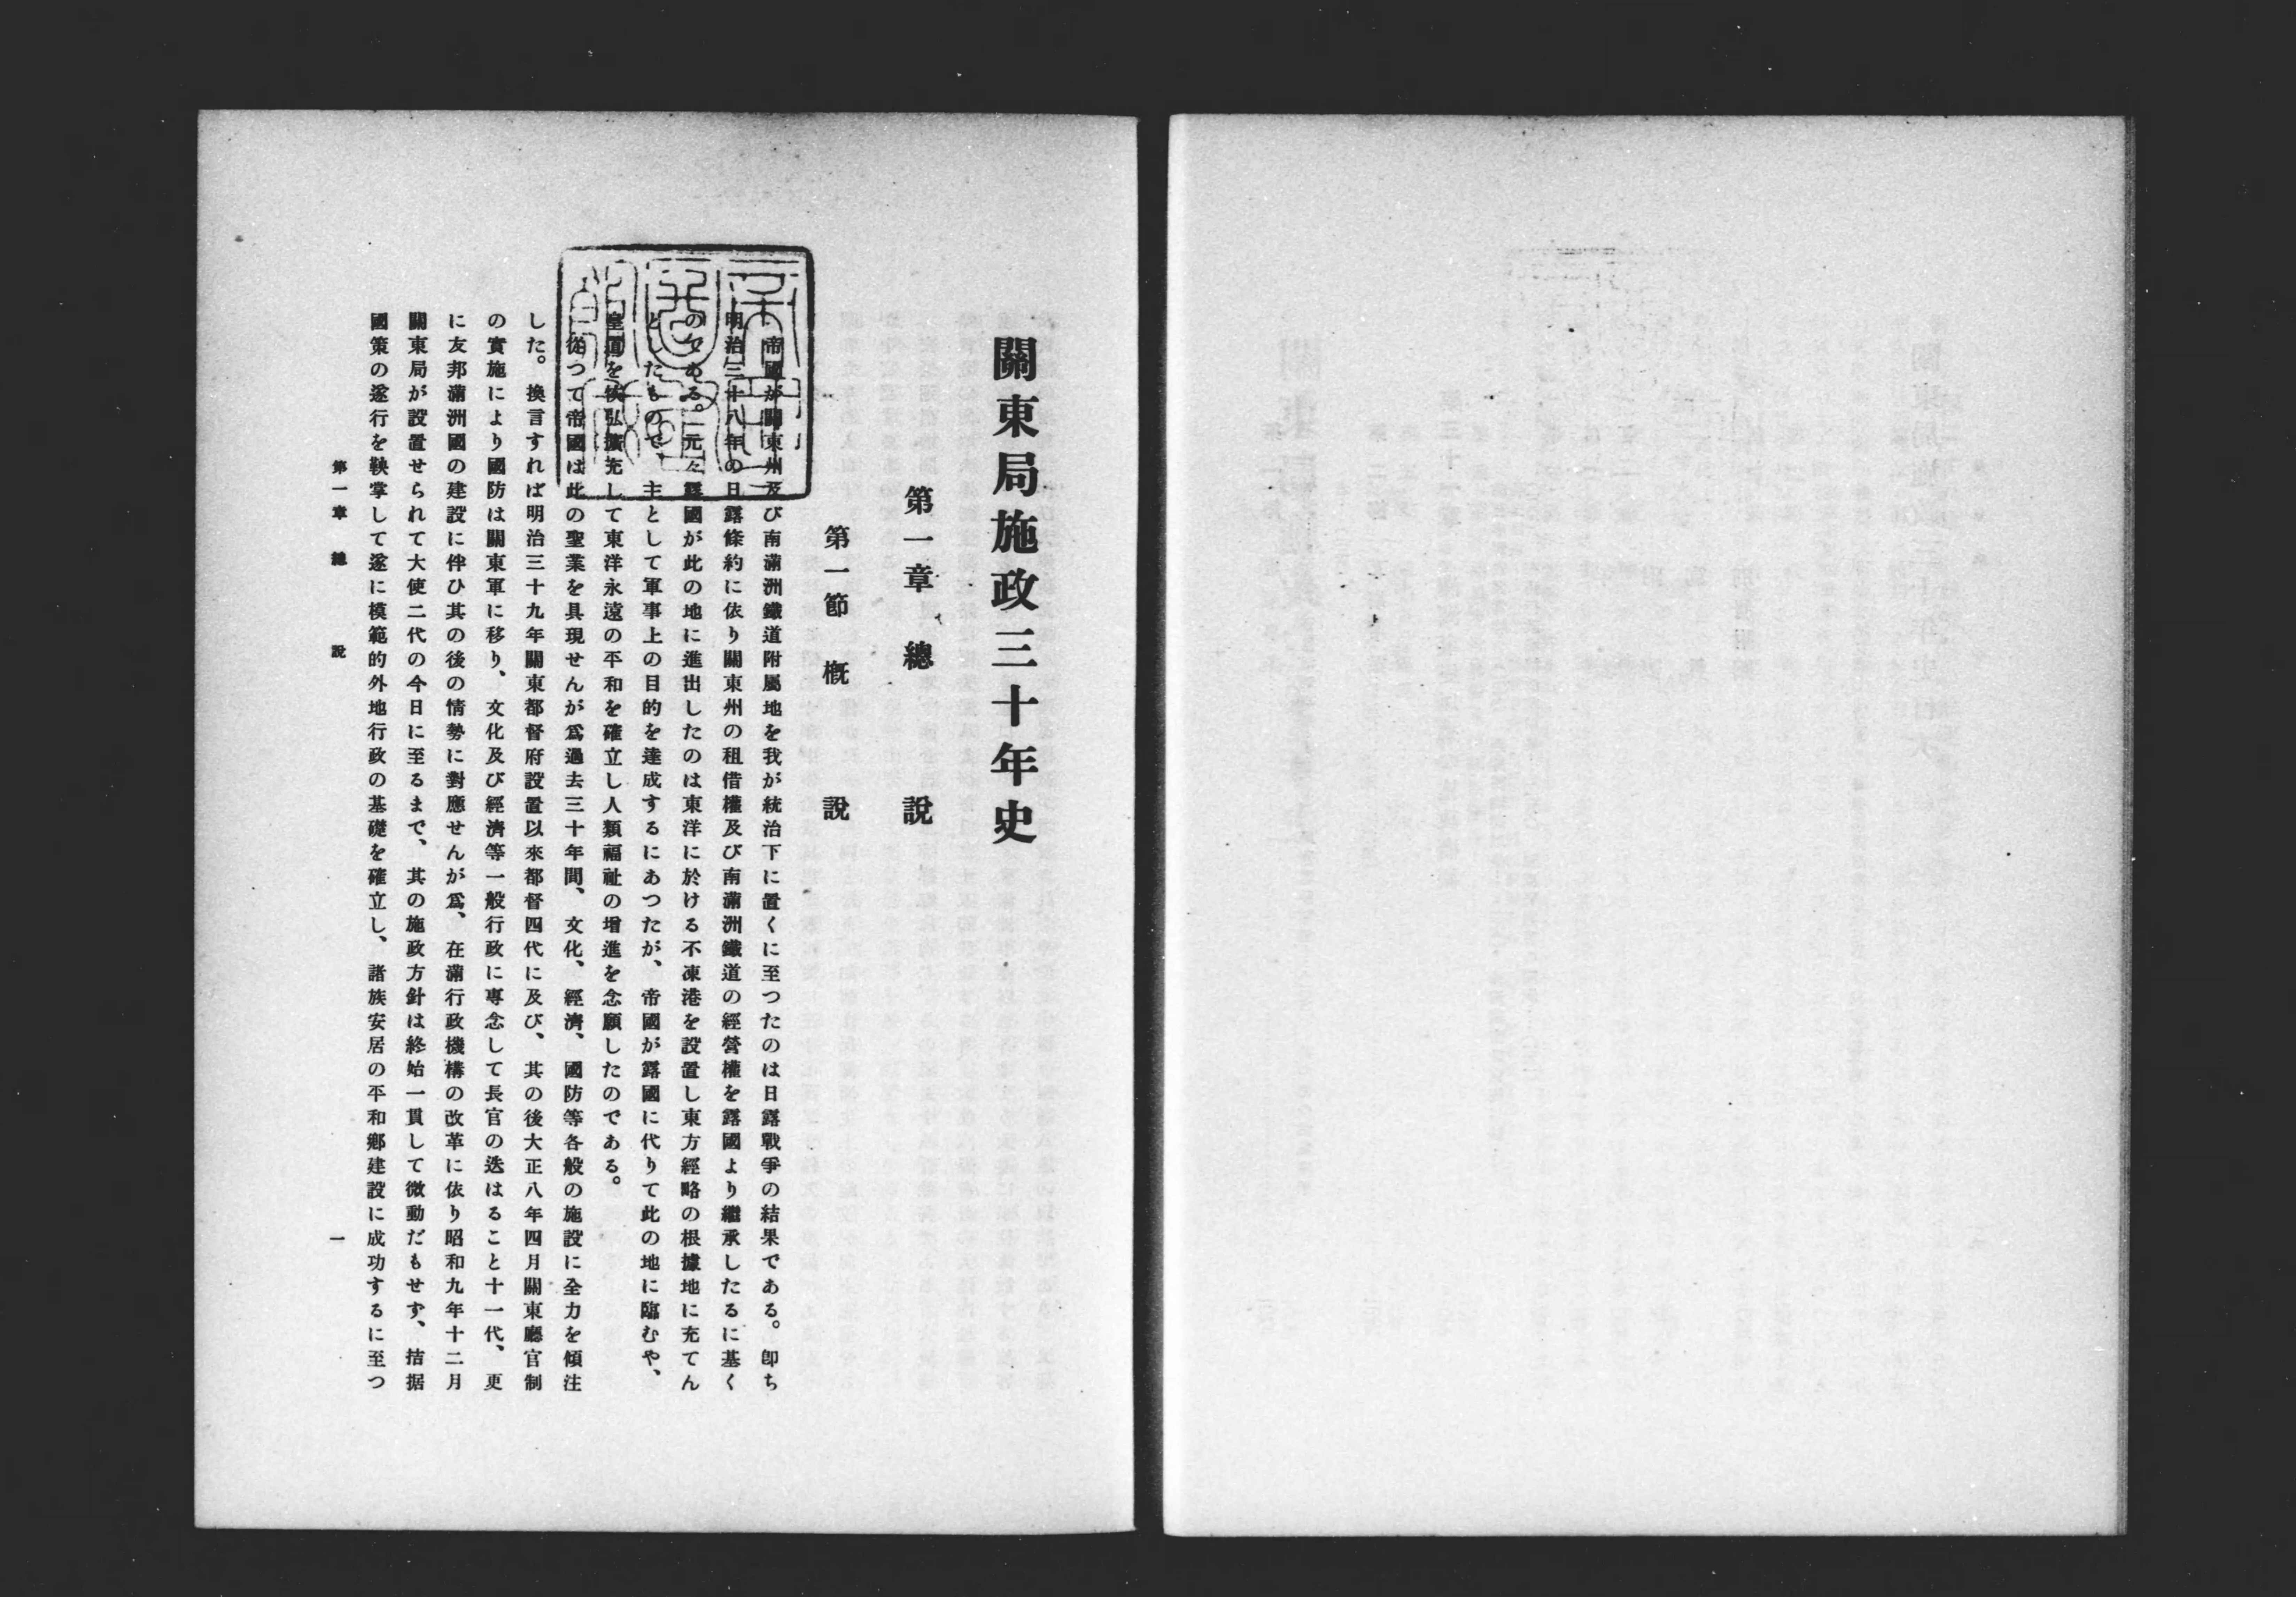 關東局施政三十年史
第一章 總說
第一節 槪說
帝國が關東州及び南滿洲鐵道附屬地を我が統治下に置くに至つたのは日露戰爭の結果である。卽ち
明治三十八年の日露條約に依り關東州の租借權及び南滿洲鐵道の經營權を露國より繼承したるに基く
のである。元々露國が此の地に進出したのは東洋に於ける不凍港を設置し東方經略の根據地に充てん
としたもので、主として軍事上の目的を達成するにあつたが、帝國が露國に代りて此の地に臨むや、
皇道を恢弘擴充して東洋永遠の平和を確立し人類福祉の增進を念願したのである。
從つて帝國は此の聖業を具現せんが爲過去三十年間、文化、經濟、國防等各般の施設に全力を傾注
した。換言すれば明治三十九年關東都督府設置以來都督四代に及び、其の後大正八年四月關東廳官制
の實施により國防は關東軍に移り、文化及び經濟等一般行政に專念して長官の迭はること十一代、更
に友邦滿洲國の建設に伴ひ其の後の情勢に對應せんが爲、在滿行政機構の改革に依り昭和九年十二月
關東局が設置せられて大使二代の今日に至るまで、其の施政方針は終始一貫して微動だもせず、拮据
國策の遂行を鞅掌して遂に模範的外地行政の基礎を確立し、諸族安居の平和鄕建設に成功するに至つ
第一章 總說
一